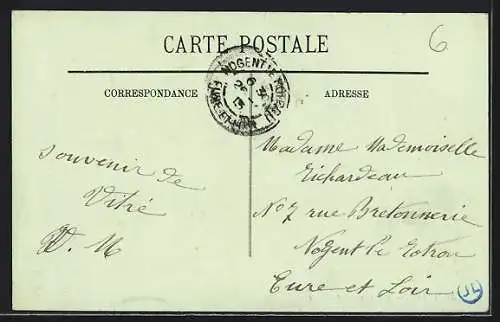 CARTE POSTALE
6
NOGENT LE ROTROU
EURE-ET-LOIR
CORRESPONDANCE
ADRESSE
Souvenir de
Vitré
Madame Mademoiselle
Richardeau
No 7 rue Bretonnerie
Nogent le Rotrou
Eure et Loir
JL